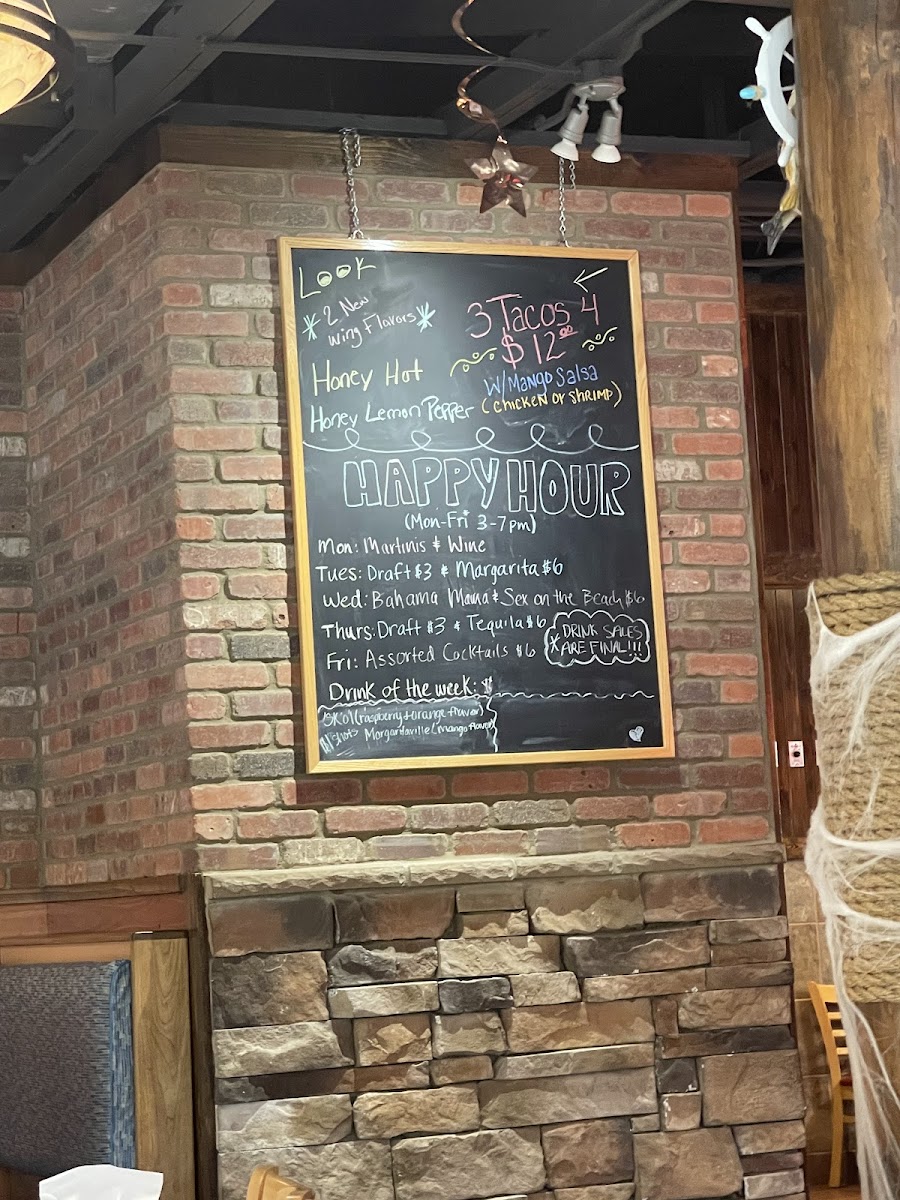 LOOK
* 2 New *
Wing Flavors
Honey Hot
Honey Lemon Pepper
3 Tacos 4
$12.00
W/ Mango Salsa
(chicken or shrimp)
HAPPY HOUR
(Mon-Fri 3-7pm)
Mon: Martinis & Wine
Tues: Draft $3 & Margarita $6
Wed: Bahama Mama & Sex on the Beach $6
Thurs: Draft $3 & Tequila $6
* DRINK SALES
ARE FINAL!!!
Fri: Assorted Cocktails $6
Drink of the week: $
(raspberry & orange flavor)
Margaritaville (mango flavor)